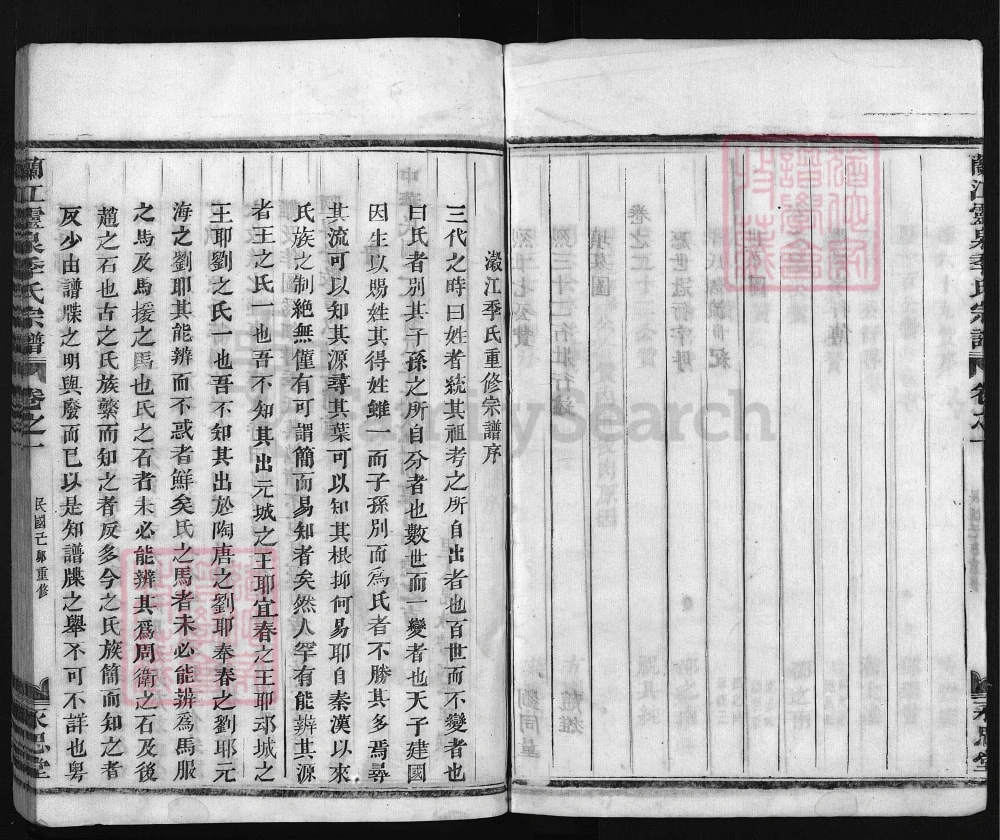 蘭江靈泉季氏宗譜
卷之一
永思堂
瀫江季氏重修宗譜序
三代之時曰姓者統其祖考之所自出者也百世而不變者也
曰氏者別其子孫之所自分者也數世而一變者也天子建國
因生以賜姓其得姓雖一而子孫別而爲氏者不勝其多焉尋
其流可以知其源尋其葉可以知其根抑何易耶自秦漢以來
氏族之制絶無僅有可謂簡而易知者矣然人罕有能辨其源
者王之氏一也吾不知其出元城之王耶宜春之王耶邙城之
王耶劉之氏一也吾不知其出於陶唐之劉耶奉春之劉耶元
海之劉耶其能辨而不惑者鮮矣氏之馬者未必能辨爲馬服
之馬及馬援之馬也氏之石者未必能辨其爲周衛之石及後
趙之石也古之氏族蘩而知之者反多今之氏族簡而知之者
反少由譜牒之明與廢而已以是知譜牒之舉不可不詳也粤
蘭江靈泉季氏宗譜
卷之一
民國己卯重修
永思堂
FamilySearch